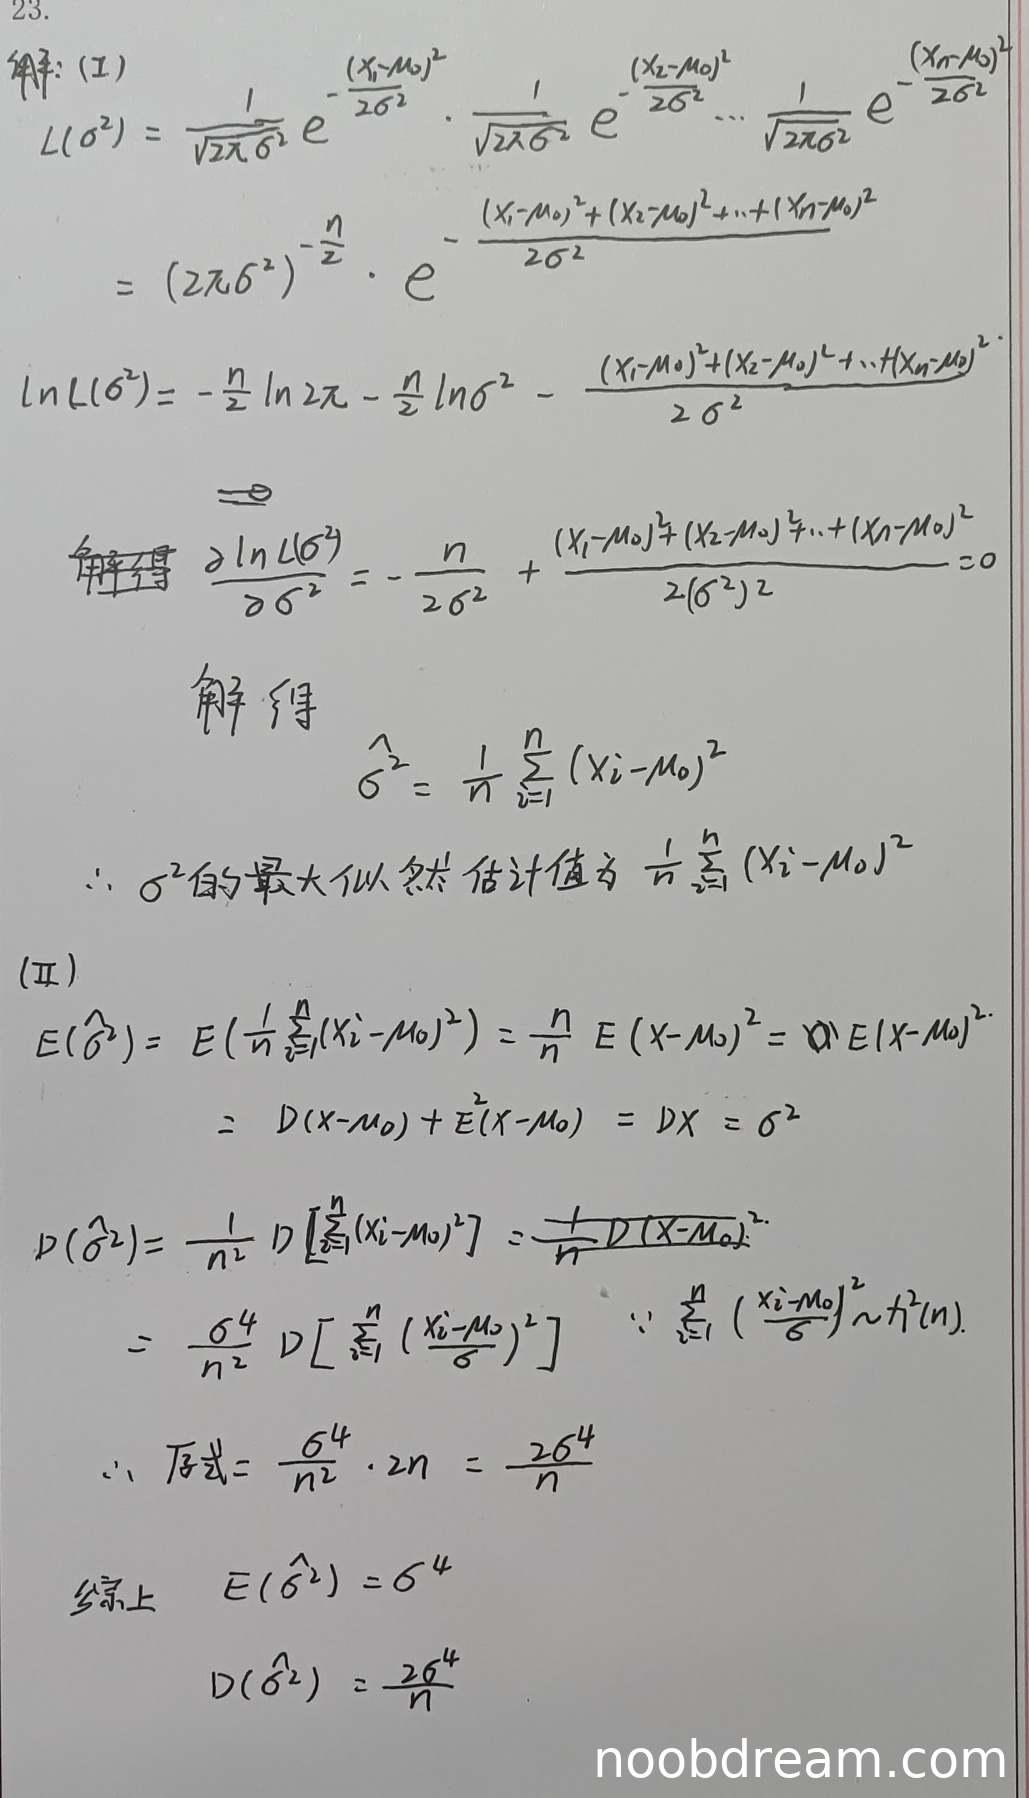 23.
解:(I)
L(σ²) = 1/√(2πσ²) e^(-(x₁-μ₀)²/2σ²) · 1/√(2πσ²) e^(-(x₂-μ₀)²/2σ²) ... 1/√(2πσ²) e^(-(xₙ-μ₀)²/2σ²)
= (2πσ²)^(-n/2) · e^(-((x₁-μ₀)²+(x₂-μ₀)²+...+(xₙ-μ₀)²)/2σ²)
ln L(σ²) = -n/2 ln2π - n/2 lnσ² - ((x₁-μ₀)²+(x₂-μ₀)²+...+(xₙ-μ₀)²)/2σ²
解得 ∂ln L(σ²)/∂σ² = -n/2σ² + ((x₁-μ₀)²+(x₂-μ₀)²+...+(xₙ-μ₀)²)/2(σ²)² = 0
解得
σ̂² = 1/n ∑ᵢ₌₁ⁿ (xᵢ-μ₀)²
∴ σ²的最大似然估计值为 1/n ∑ᵢ₌₁ⁿ (xᵢ-μ₀)²
(II)
E(σ̂²) = E(1/n ∑ᵢ₌₁ⁿ (xᵢ-μ₀)²) = n/n E(x-μ₀)² = E(x-μ₀)²
= D(x-μ₀) + E²(x-μ₀) = DX = σ²
D(σ̂²) = 1/n² D[∑ᵢ₌₁ⁿ (xᵢ-μ₀)²] = 1/n D(x-μ₀)²
= σ⁴/n² D[∑ᵢ₌₁ⁿ ((xᵢ-μ₀)/σ)²] ∵ ∑ᵢ₌₁ⁿ ((xᵢ-μ₀)/σ)² ~ χ²(n).
∴ 原式 = σ⁴/n² · 2n = 2σ⁴/n
综上 E(σ̂²) = σ⁴
D(σ̂²) = 2σ⁴/n
noobdream.com